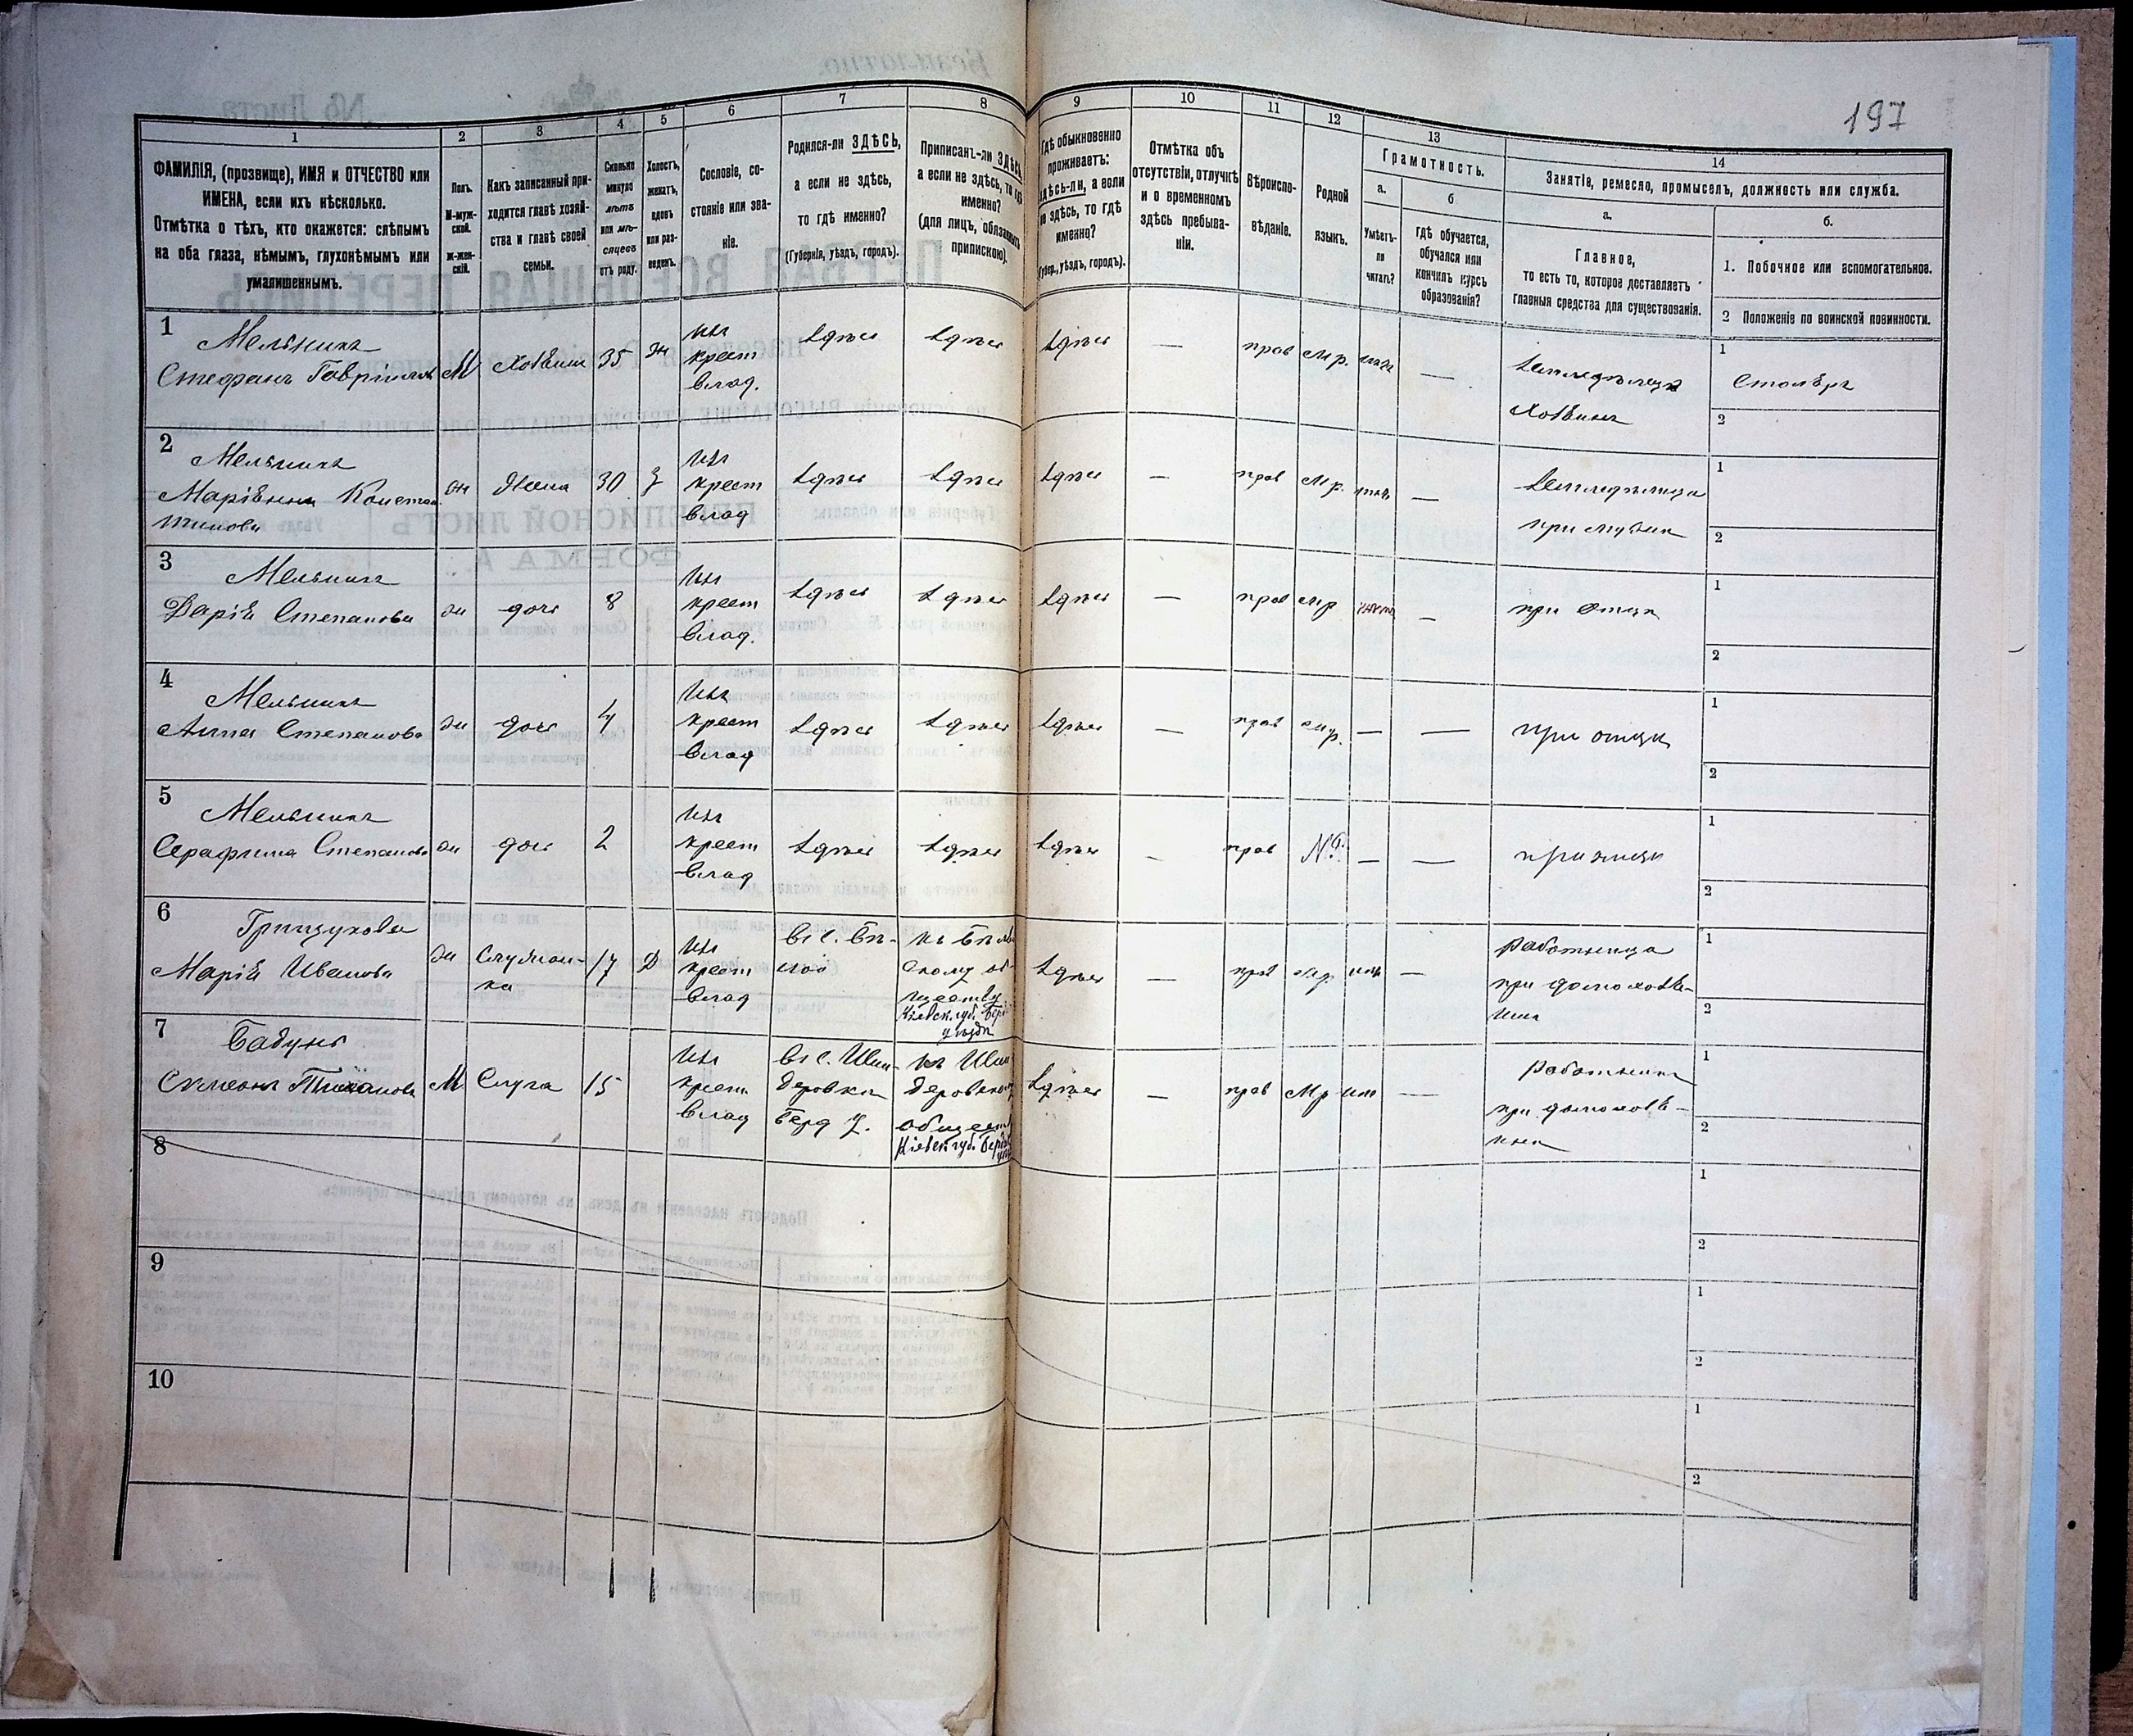 197
1 2 3 4 5 6 7 8 9 10 11 12 13 14
ФАМИЛІЯ, (прозвище), ИМЯ и ОТЧЕСТВО или
ИМЕНА, если ихъ нѣсколько.
Отмѣтка о тѣхъ, кто окажется: слѣпымъ
на оба глаза, нѣмымъ, глухонѣмымъ или
умалишеннымъ.
Полъ.
М-муж-
ской.
ж-жен-
скій.
Какъ записанный при-
ходится главѣ хозяй-
ства и главѣ своей
семьи.
Сколько
минуло
лѣтъ
или мѣ-
сяцевъ
отъ роду.
Холостъ,
женатъ,
вдовъ
или раз-
веденъ.
Сословіе, со-
стояніе или зва-
ніе.
Родился-ли ЗДѢСЬ,
а если не здѣсь,
то гдѣ именно?
(Губернія, уѣздъ, городъ).
Приписанъ-ли ЗДѢСЬ,
а если не здѣсь, то гдѣ
именно?
(для лицъ, обязанныхъ
припискою).
Гдѣ обыкновенно
проживаетъ:
здѣсь-ли, а если
не здѣсь, то гдѣ
именно?
(Губер., уѣздъ, городъ).
Отмѣтка объ
отсутствіи, отлучкѣ
и о временномъ
здѣсь пребыва-
ніи.
Вѣроиспо-
вѣданіе.
Родной
языкъ.
Грамотность.
а.
Умѣетъ-
ли
читать?
б
гдѣ обучается,
обучался или
кончилъ курсъ
образованія?
Занятіе, ремесло, промыселъ, должность или служба.
а.
Главное,
то есть то, которое доставляетъ
главныя средства для существованія.
б.
1. Побочное или вспомогательное.
2 Положеніе по воинской повинности.
1
Мельникъ
Стефанъ
М
Хозяин
35
ж
изъ
крест
влад.
здѣсь
здѣсь
здѣсь
—
прав
Мр.
—
Хозяинъ
1
Столяръ
2
2
Мельникъ
ж
Жена
30
З
изъ
крест
влад
здѣсь
здѣсь
здѣсь
—
прав
Мр.
—
при мужѣ
1
2
3
Мельникъ
Дарія Степанова
ж
дочь
8
изъ
крест
влад.
здѣсь
здѣсь
здѣсь
—
прав
мр
—
при отцѣ
1
2
4
Мельникъ
Анна Степанова
ж
дочь
4
изъ
крест
влад
здѣсь
здѣсь
здѣсь
—
прав
мр.
—
—
при отцѣ
1
2
5
Мельникъ
Серафима Степанова
ж
дочь
2
изъ
крест
влад
здѣсь
здѣсь
здѣсь
—
прав
—
—
при отцѣ
1
2
6
Грищукова
Марія Иванова
ж
Служан-
ка
17
Д
изъ
крест
влад
въ с. Бѣ-
лой
къ Бѣль
скому об-
ществу
Кіевск. губ. Берд.
уѣзда
здѣсь
—
прав
мр.
—
работница
при домохозя-
инѣ
1
2
7
М
Слуга
15
изъ
крест
влад
въ с. Шен-
деровкѣ
Берд У.
къ Шен
деровском
обществ
Кіевск губ. Берд
здѣсь
—
прав
Мр
—
работникъ
при домохозя-
инѣ
1
2
8
1
2
9
1
2
10
1
2